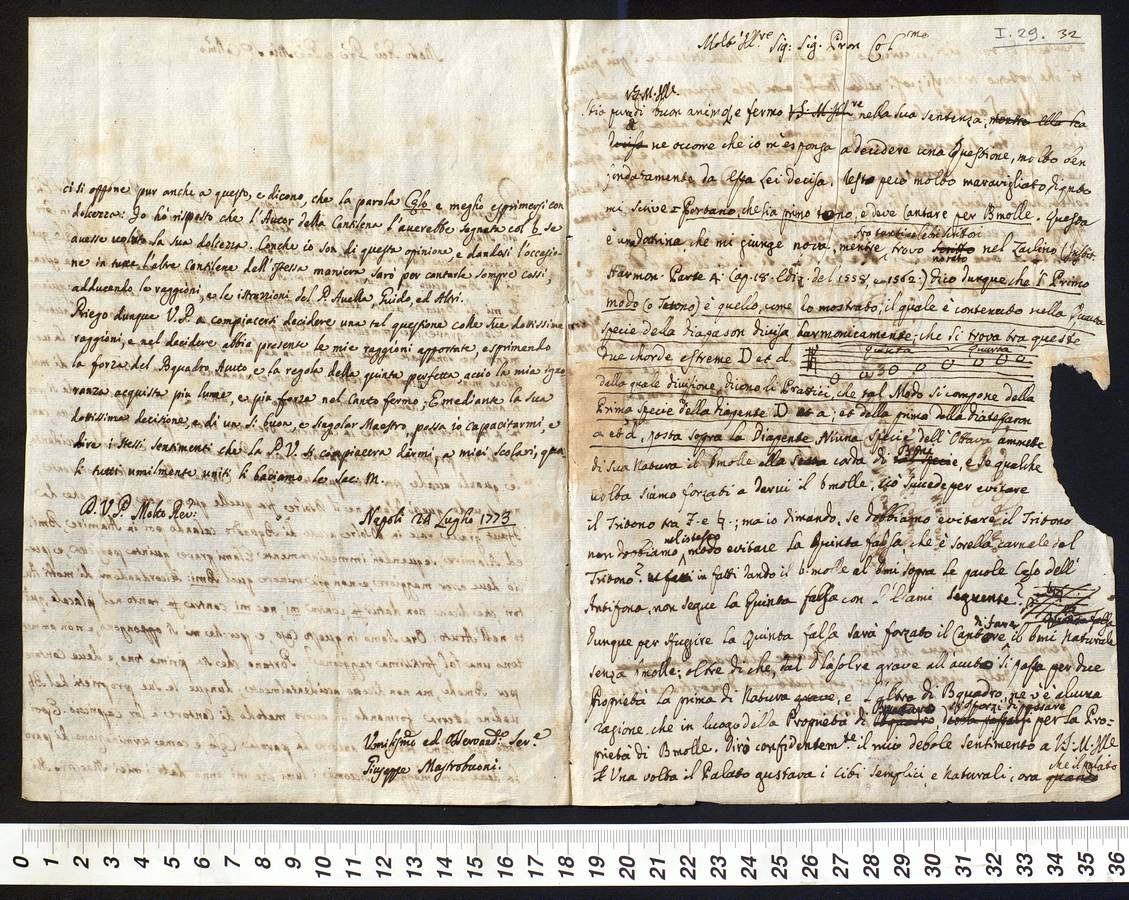 ci si oppone pur anche a questo, e dicono, che la parola Cęlo e meglio esprimersi con
dolcezza: Io hò risposto che l'Autor della Cantilena l'averebbe segnata col b, se
avesse voluto la sua dolcezza. Onche io son di questa opinione, e dandosi l'occasio=
ne in tutte l'altre Cantilene dell'istessa maniera sarò per cantarle sempre cossì,
adducendo le raggioni, e le istruzioni del P. Avella, Guido, ed Altri.
Priego dunque V.P. a compiacersi decidere una tal questione colle sue dottissime
raggioni, e nel decidere abbia presente le mie raggioni apportate, esprimendo
la forza del Bquadro Acuto e la regola della quinta perfetta, acciò la mia igno
ranza acquista più lume, e più forze nel Canto fermo; E mediante la sua
dottissima decisione, e di un sì buon, e singolar Maestro, possa io capacitarmi, e
dare i stessi sentimenti che la P.V. si compiacerà darmi, a miei scolari, qua
li tutti umilmente uniti li baciamo le sac: M.
D. V. P. Molto Rev:
Napoli 24 Luglio 1773
Umilissimo ed Osservand: Ser.e
Giuseppe Mastrobuoni.
I. 29. 32
Molt'Ill.re Sig: Sig. Pron Col.mo
VS. M. Ill.
Stia pure di buon animo, e fermo VS. M. Ill.re nella sua sentenza, mentre ella ha
decisa ne occorre che io m'esponga a decidere una Questione, molto ben
fondatamente da essa Lei decisa. Resto però molto maravigliato, quanto
mi scrive = Portano, che sia primo tono, e deve Cantare per Bmolle. Questa
tra tanti celebri scrittori
è una dottrina che mi giunge nova, mentre trovo scritto nel Zarlino (Instit.
notato
Harmon: Parte 4: Cap. 18. Ediz. del 1558. e 1562:) dico dunque che 'l Primo
modo (o Tuono) è quello, come hò mostrato; il quale è contenuto nella Quarta
specie della Diapason divisa harmonicamente; che si trova tra queste
due chorde estreme D et d
quinta Quarta
della quale divisione, dicono li Prattici, che tal Modo si compone della
Prima specie della diapente D et a; et della prima della diatessaron
a et d, posta sopra la Diapente. Niuna specie dell'Ottava ammette
di sua natura il Bmolle alla sesta corda di Bmi, e se qualche
volta siamo forzati a darvi il bmolle, ciò succede per evitare
il Tritono tra F. e ♮.; ma io dimando, se dobbiamo evitare il Tritono
nel istesso
non dobbiamo modo evitare la Quinta falsa che è sorella carnale del
Tritono? in fatti dando il b. molle al bmi sopra le parole Cęlo dell'
Antifona, non segue la Quinta falsa con l'Elami seguente?
di fare
Dunque per sfuggire la Quinta falsa sarà forzato il Cantore il bmi naturale
senza molle; oltre di che, dal Dlasolre grave all'acuto si passa per due
Proprietà la prima di Natura grave, e l'altra di Bquadro, ne v'è alcuna
si sforzi di passare
ragione, che in luogo della Proprietà di Bquadro per la Pro=
prietà di Bmolle. Dirò confidentem.te il mio debole sentimento a VS. M. Ill.
che il palato
Una volta il Palato gustava i cibi semplici, e naturali, ora quando
0 1 2 3 4 5 6 7 8 9 10 11 12 13 14 15 16 17 18 19 20 21 22 23 24 25 26 27 28 29 30 31 32 33 34 35 36